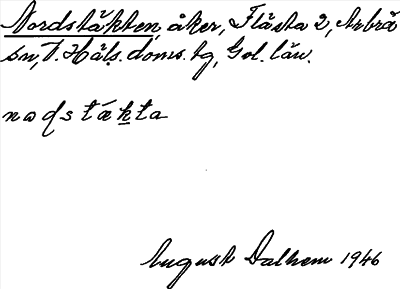 Nordstäkten, åker, Flästa 2, Arbrå
sn, V. Häls. doms. tg, Gvl. län.
nods täkta
August Dalhem 1946